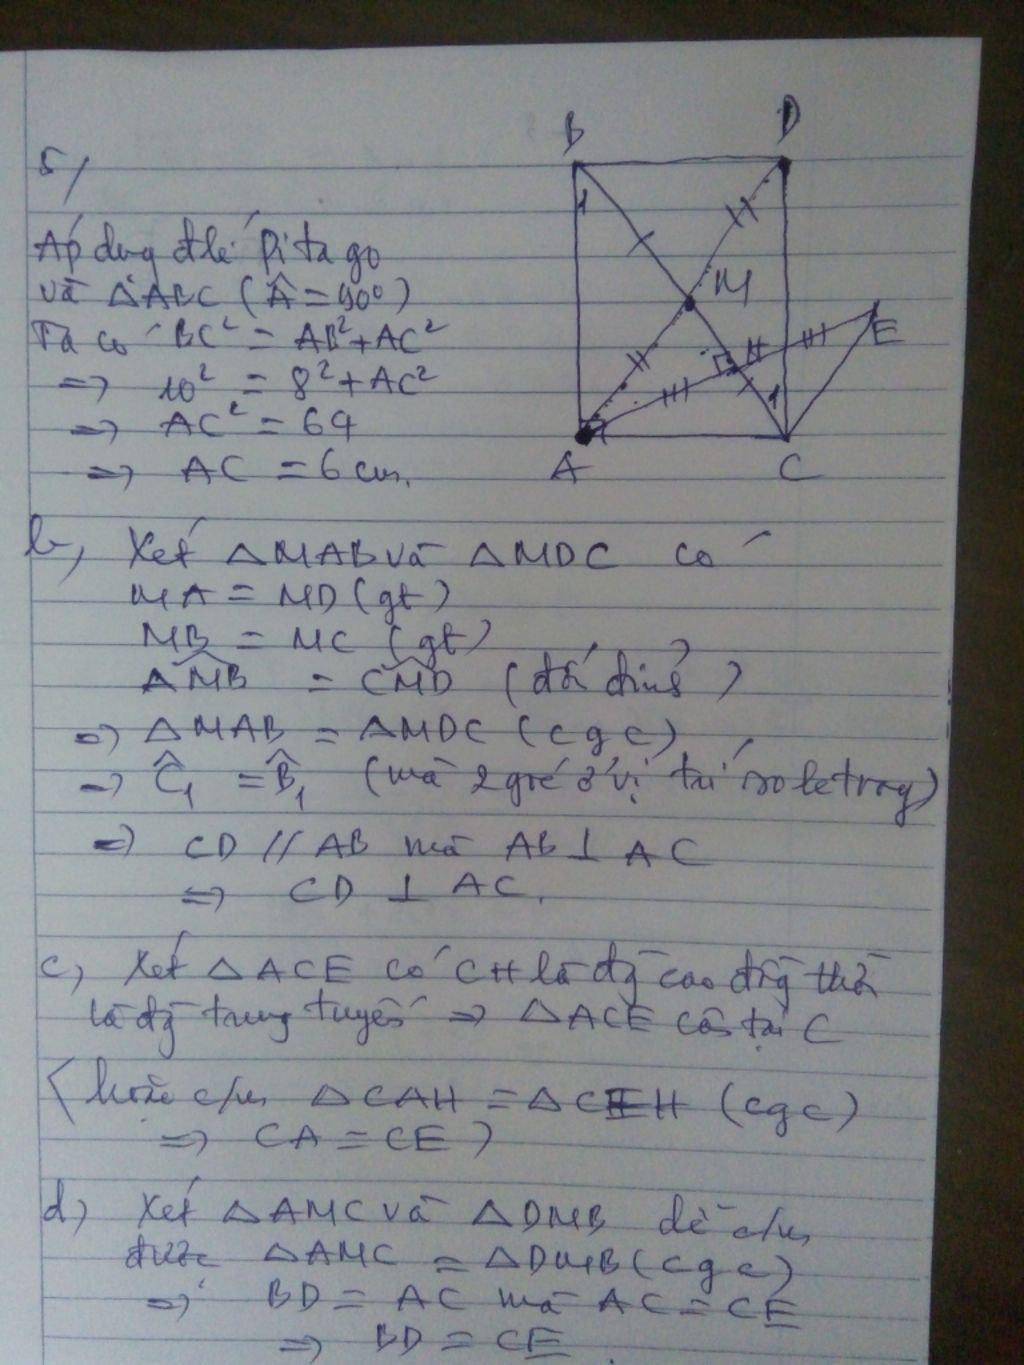 B D
5/
Áp dụng đlí Pitago
M
và △ABC (Â = 90°)
E
Ta có BC² = AB² + AC²
H
=> 10² = 8² + AC²
1
1
=> AC² = 64
=> AC = 6 cm.
A C
b, Xét △MAB và △MDC có
MA = MD (gt)
MB = MC (gt)
AMB = CMD (đối đỉnh)
=> △MAB = △MDC (cgc)
=> Ĉ₁ = B̂₁ (mà 2 góc ở vị trí so le trong)
=> CD // AB mà AB ⊥ AC
=> CD ⊥ AC.
c, Xét △ACE có CH là đg cao đồng thời
là đg trung tuyến => △ACE cân tại C
(hoặc c/m △CAH = △CEH (cgc)
=> CA = CE)
d) Xét △AMC và △DMB dễ c/m
được △AMC = △DMB (cgc)
=> BD = AC mà AC = CE
=> BD = CE